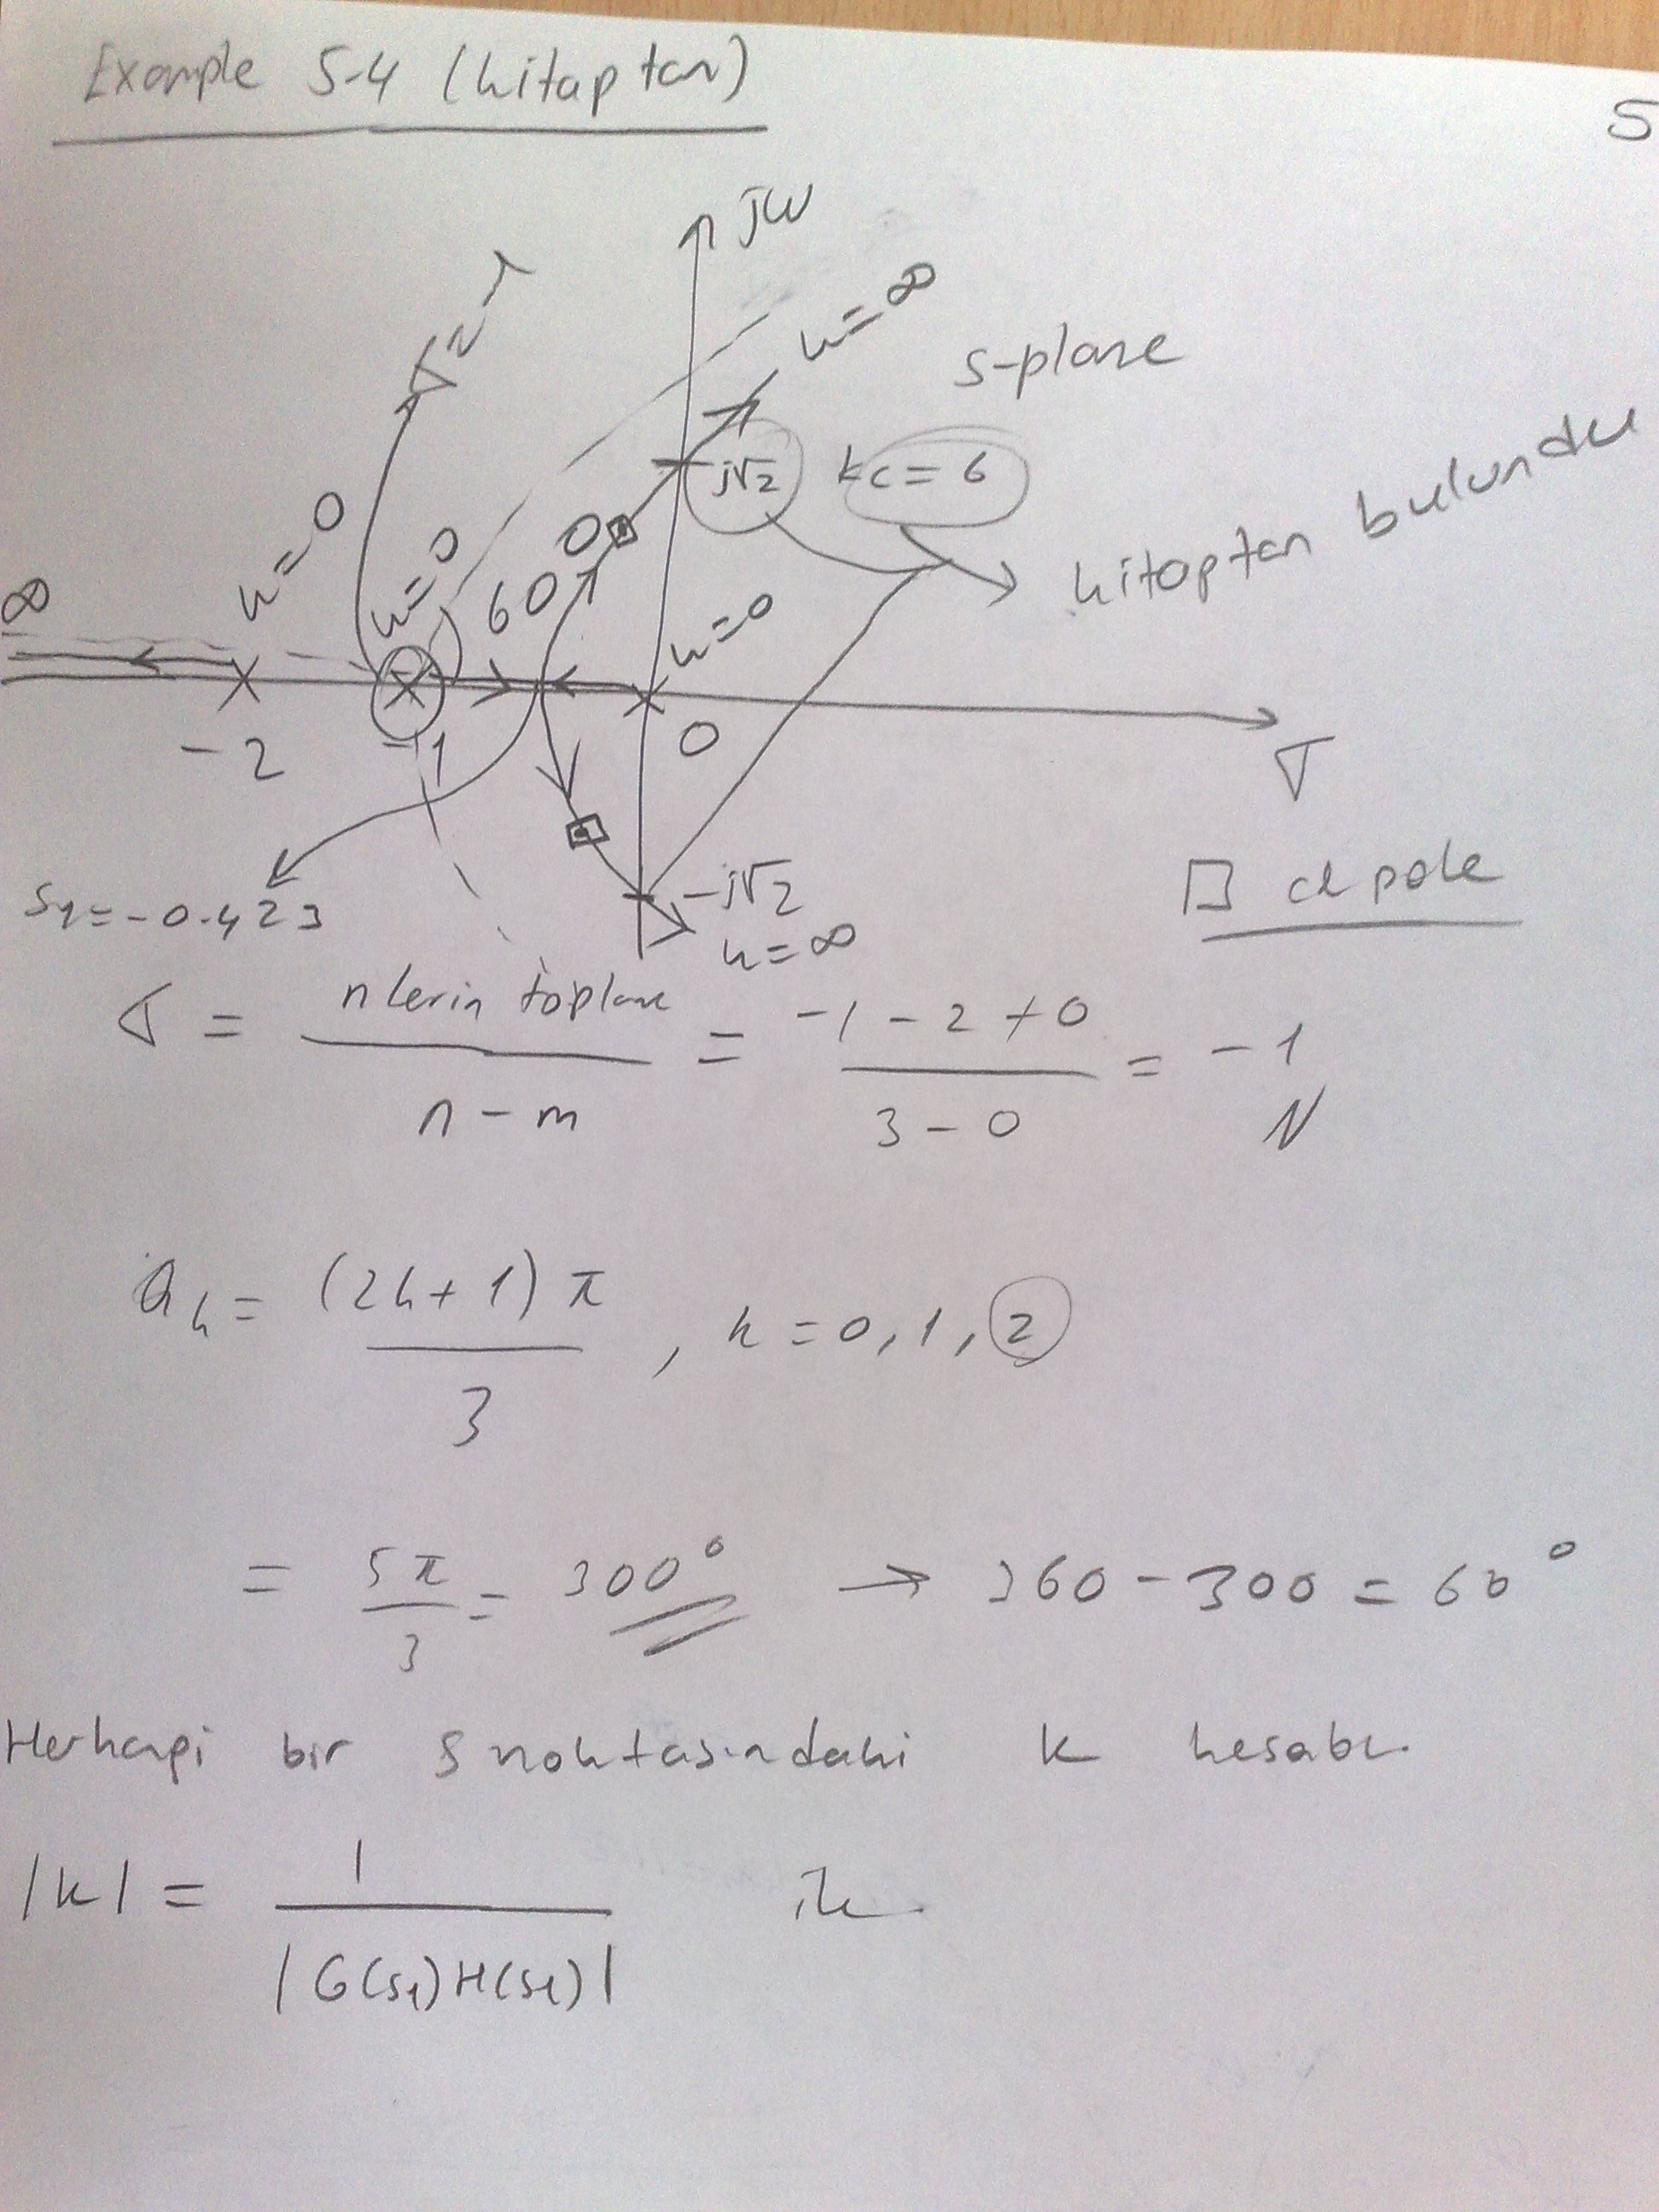 Example 5-4 (kitaptan)
5
jw
σ=-1
k=∞
s-plane
j√2 kc=6
kitaptan bulundu
k=0
k=0
60°
k=0
∞
-2
-1
0
σ
s1=-0.423
-j√2
k=∞
□ cl pole
σ = nlerin toplamı / n-m = -1-2+0 / 3-0 = -1
θk = (2k+1)π / 3 , k=0,1,2
= 5π/3 = 300° → 360-300=60°
Herhangi bir s noktasındaki k hesabı
|k| = 1 / |G(s1)H(s1)| ile